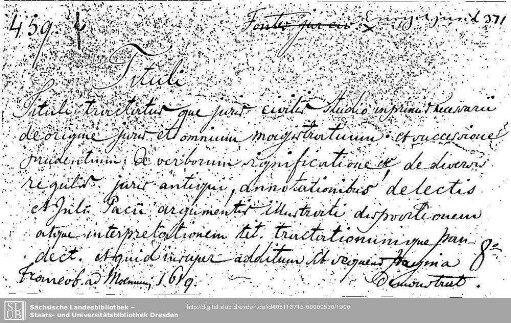 459.
371
Tituli
Tituli tractatus que juris civilis studio inprimis necessarii
de origine juris et omnium magistratuum et successione
prudentium, de verborum significatione et de diversis
regulis juris antiqui, annotationibus delectis
et Julii Pacii argumentis illustrati dispositionem
atque interpretationem tit. tractationumque pan
dect. et quid insuper additum sit sequens pagina 8º
Demonstrat.
Franeob. ad 1619.
Sächsische Landesbibliothek –
Staats- und Universitätsbibliothek Dresden